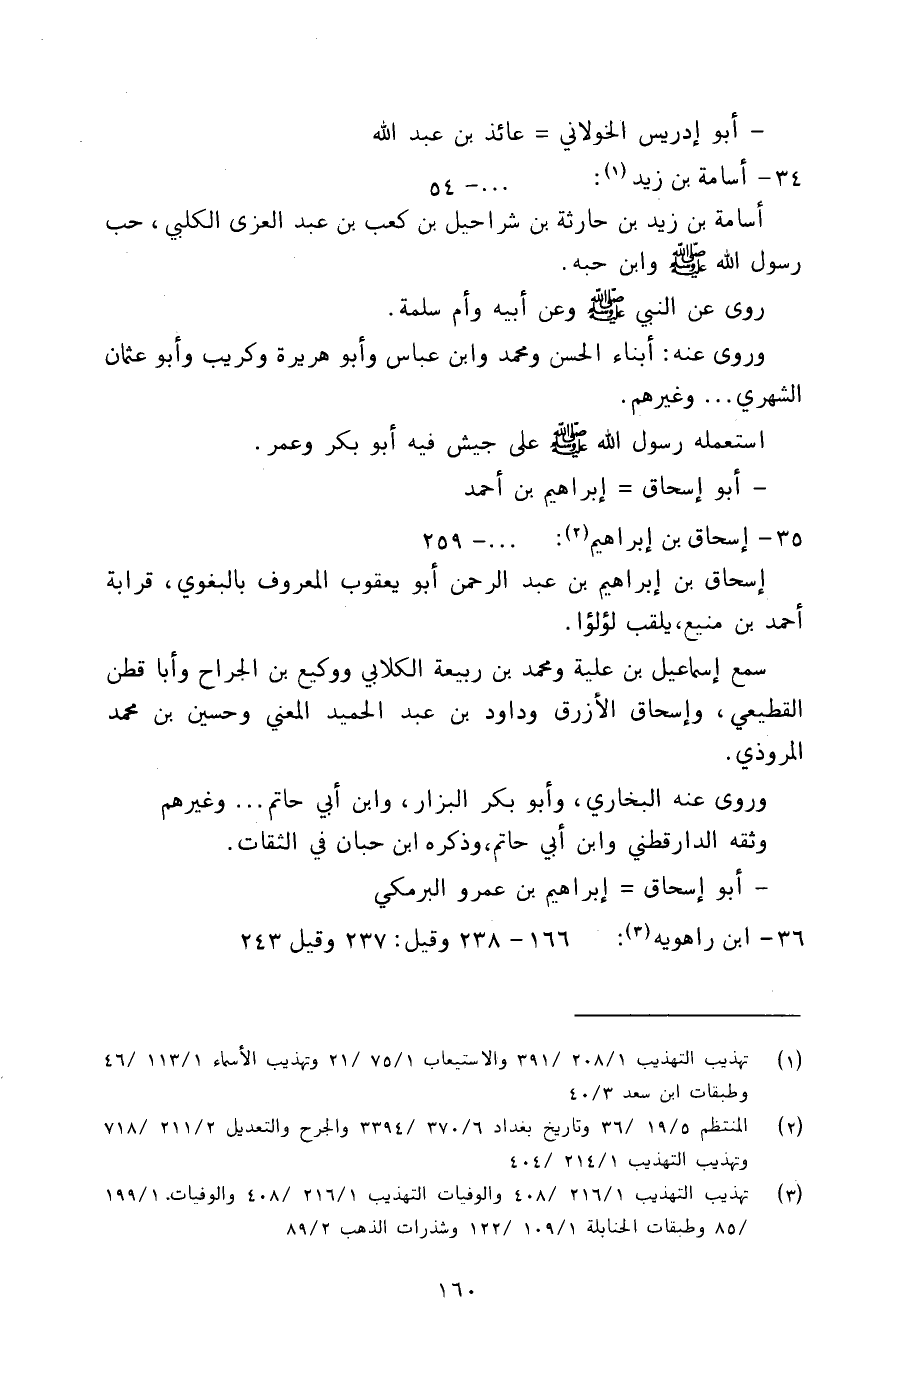 – أبو إدريس الخولاني = عائذ بن عبد الله
٣٤– أسامة بن زيد(١): ...– ٥٤
أسامة بن زيد بن حارثة بن شراحيل بن كعب بن عبد العزى الكلبي، حب
رسول الله ﷺ وابن حبه.
روى عن النبي ﷺ وعن أبيه وأم سلمة.
وروى عنه: أبناء الحسن ومحمد وابن عباس وأبو هريرة وكريب وأبو عثمان
الشهري... وغيرهم.
استعمله رسول الله ﷺ على جيش فيه أبو بكر وعمر.
– أبو إسحاق = إبراهيم بن أحمد
٣٥– إسحاق بن إبراهيم(٢): ...– ٢٥٩
إسحاق بن إبراهيم بن عبد الرحمن أبو يعقوب المعروف بالبغوي، قرابة
أحمد بن منيع، يلقب لؤلؤا.
سمع إسماعيل بن علية ومحمد بن ربيعة الكلابي ووكيع بن الجراح وأبا قطن
القطيعي، وإسحاق الأزرق وداود بن عبد الحميد المعني وحسين بن محمد
المروذي.
وروى عنه البخاري، وأبو بكر البزار، وابن أبي حاتم... وغيرهم
وثقه الدارقطني وابن أبي حاتم، وذكره ابن حبان في الثقات.
– أبو إسحاق = إبراهيم بن عمرو البرمكي
٣٦– ابن راهويه(٣): ١٦٦– ٢٣٨ وقيل: ٢٣٧ وقيل ٢٤٣
(١) تهذيب التهذيب ٢٠٨/١ /٣٩١ والاستيعاب ٧٥/١ /٢١ وتهذيب الأسماء ١١٣/١ /٤٦
وطبقات ابن سعد ٤٠/٣
(٢) المنتظم ١٩/٥ /٣٦ وتاريخ بغداد ٣٧٠/٦ /٣٣٩٤ والجرح والتعديل ٢١١/٢ /٧١٨
وتهذيب التهذيب ٢١٤/١ /٤٠٤
(٣) تهذيب التهذيب ٢١٦/١ /٤٠٨ والوفيات التهذيب ٢١٦/١ /٤٠٨ والوفيات. ١٩٩/١
/٨٥ وطبقات الحنابلة ١٠٩/١ /١٢٢ وشذرات الذهب ٨٩/٢
١٦٠